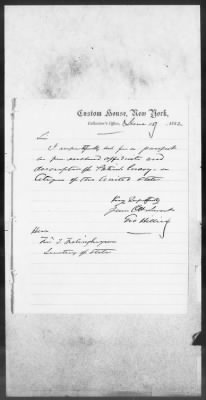 Custom House, New York,
Collector's Office, June 19, 1882
Sir
I respectfully ask for a passport
on the enclosed affidavit and
description of Patrick Casey a
citizen of the United States
Very Respectfully
Your Obt Servant
Geo
Hon
Fred. T. Frelinghuysen
Secretary of State